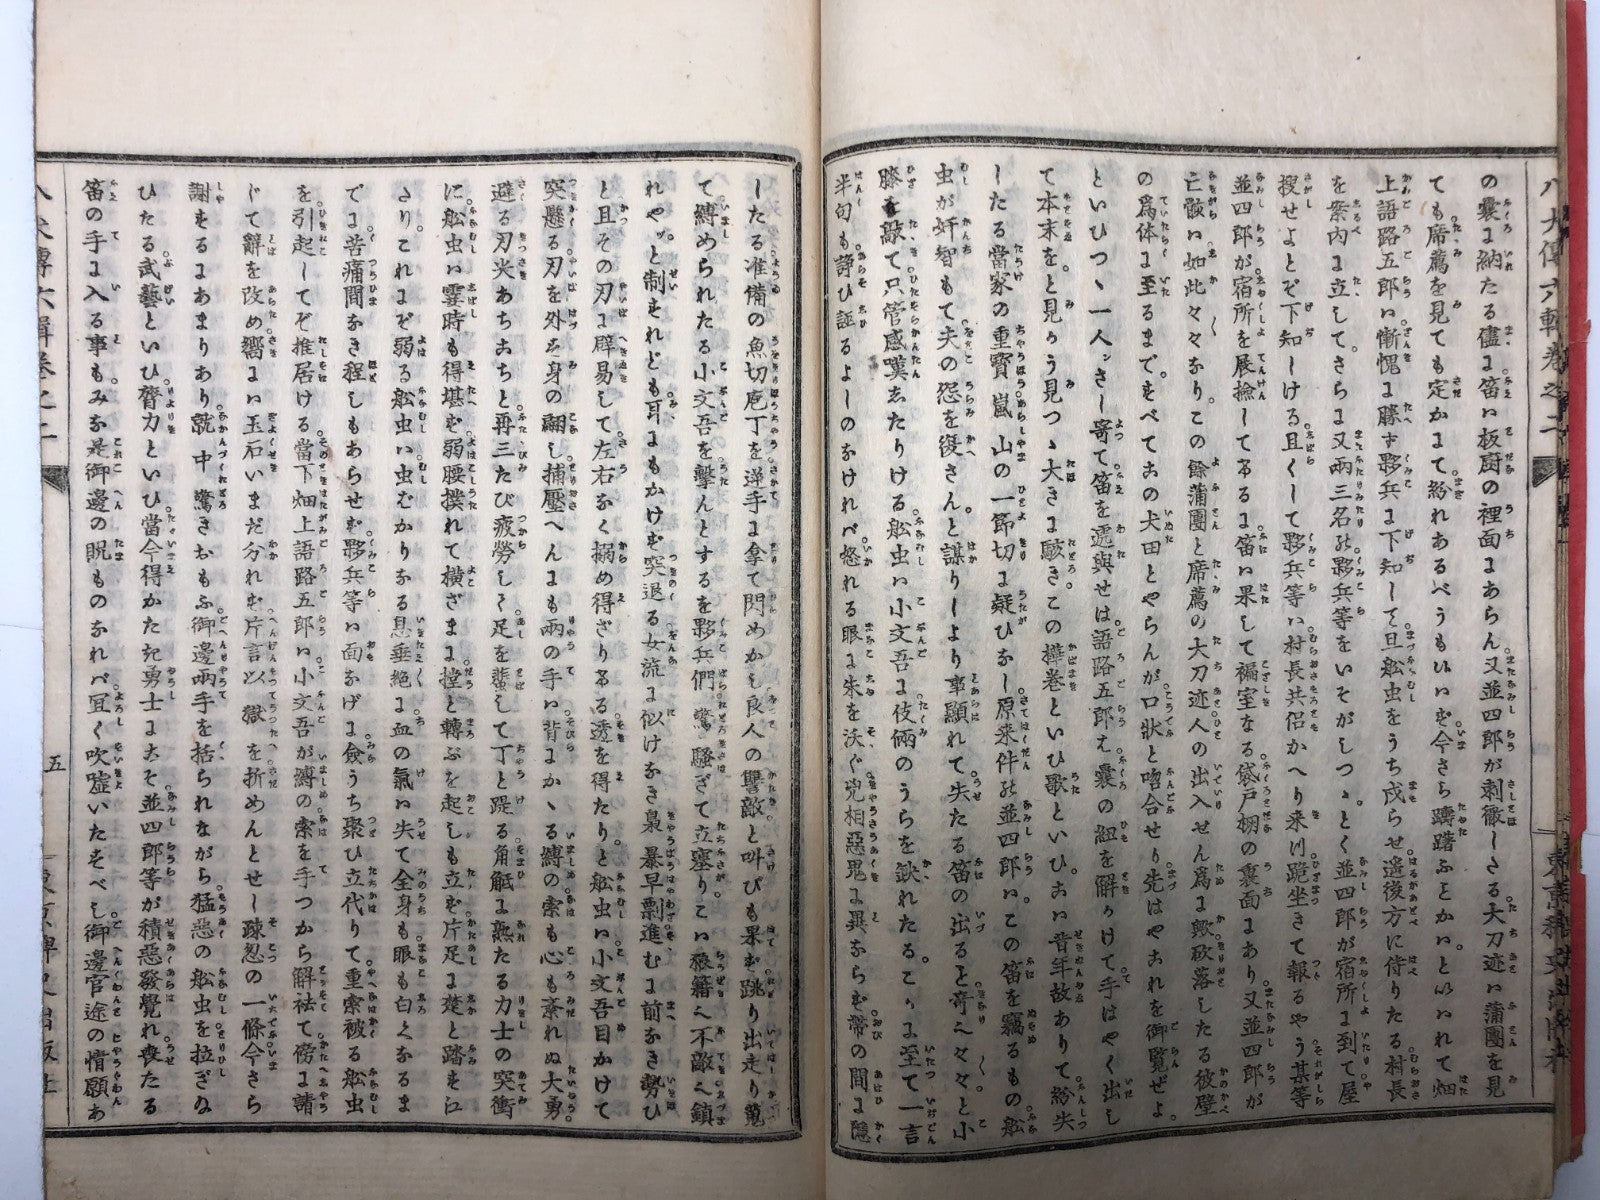 八犬傳六輯卷之二
の嚢ま納たる儘ま笛ハ板厨の裡面まあらん又並四郎が刺徹しさる大刀迹ハ蒲團を見
ても席薦を見ても定かまて紛れあるべうもひハず今さら躊躇ふとかハ。といハれて畑
上語路五郎ハ慚愧ま勝ず夥兵ま下知して且舩虫をうち戍らせ遙後方に侍りたる村長
を案内ま立してさらま又兩三名の夥兵等をいそがしつゝ。とく並四郎が宿所ま到て屋
捜せよとぞ下知しける且くして夥兵等ハ村長共侶かへり來つ跪坐きて報るやう某等
並四郎が宿所を展撿してるま笛ハ果して褊室なる袋戸棚の裏面まあり又並四郎が
亡骸ハ如此々々なり。この餘蒲團と席薦の大刀迹人の出入せん爲ま毀砍落したる彼壁
の爲体ま至るまで。すべてかの犬田とやらんが口状と吻合せり先はやこれを御覧ぜよ。
といひつゝ一人さし寄て笛を遞與せは語路五郎も嚢の紐を解かけて手はやく出し
て本末を。と見かう見つゝ大きま駭き。この樺卷といひ歌といひ。こハ昔年故ありて紛失
したる當家の重寳嵐山の一節切ま疑ひなし原來件の並四郎ハ。この笛を竊るもの舩
虫が奸智もて夫の怨を復さん。と謀りしより事顯れて失たる笛の出ると奇々々々と小
膝を敲て只管感嘆またりける舩虫ハ小文吾ま伎倆のうらを缺れたる。こゝま至て一言
半句も諍ひ証るよしのなけれバ怒れる眼ま朱を沃ぐ兇相惡鬼ま異ならず帶の間ま隱
したる准備の魚切庖丁を逆手ま拿て閃めかし良人の讐敵と叫びも果ず跳り出走り蒐
て縛められたる小文吾を擊んとするを夥兵們驚騷ぎて立塞り。こハ狼籍へ不敵へ鎭
れやッと制すれども耳まもかけず突退る女流ま似けなき梟暴早剽進むま前なき勢ひ
と且その刃ま辟易して左右なく搦め得ざりるる透を得たり。と舩虫ハ小文吾目かけて
突懸る刃を外す身の翻し捕壓へんまも兩の手ハ背まかゝる縛の索も心も紊れぬ大勇。
避る刃尖あちこちと再三たび疲勞しく足を蜚して丁と踢る角觝ま熟たる力士の突衝
に舩虫ハ霎時も得堪ず弱腰撲れて横ざまま撑と轉ぶを起しも立ず片足ま楚と踏す江
さり。これまぞ弱る舩虫ハ虫むかりなる息垂絶ま血の氣ハ失て全身も眼も白くなるま
でま苦痛間なき程しもあらせず夥兵等ハ面なげま僉うち聚ひ立代りて重索被る舩虫
を引起してぞ推居ける當下畑上語路五郎ハ小文吾が縛の索を手つから解祛て傍ま請
じて辭を改め嚮まハ玉石いまだ分れず片言以獄を折めんとせし疎忽の一條今さら
謝するまあまりあり就中驚きおもふ御邊兩手を括られながら猛惡の舩虫を拉ぎぬ
ひたる武藝といひ膂力といひ當今得かたき勇士まこそ並四郎等が積惡發覺れ喪たる
笛の手ま入る事もみな是御邊の賜ものなれバ宜く吹噓いたすべし御邊官途の情願あ
八犬傳六輯卷之二
五